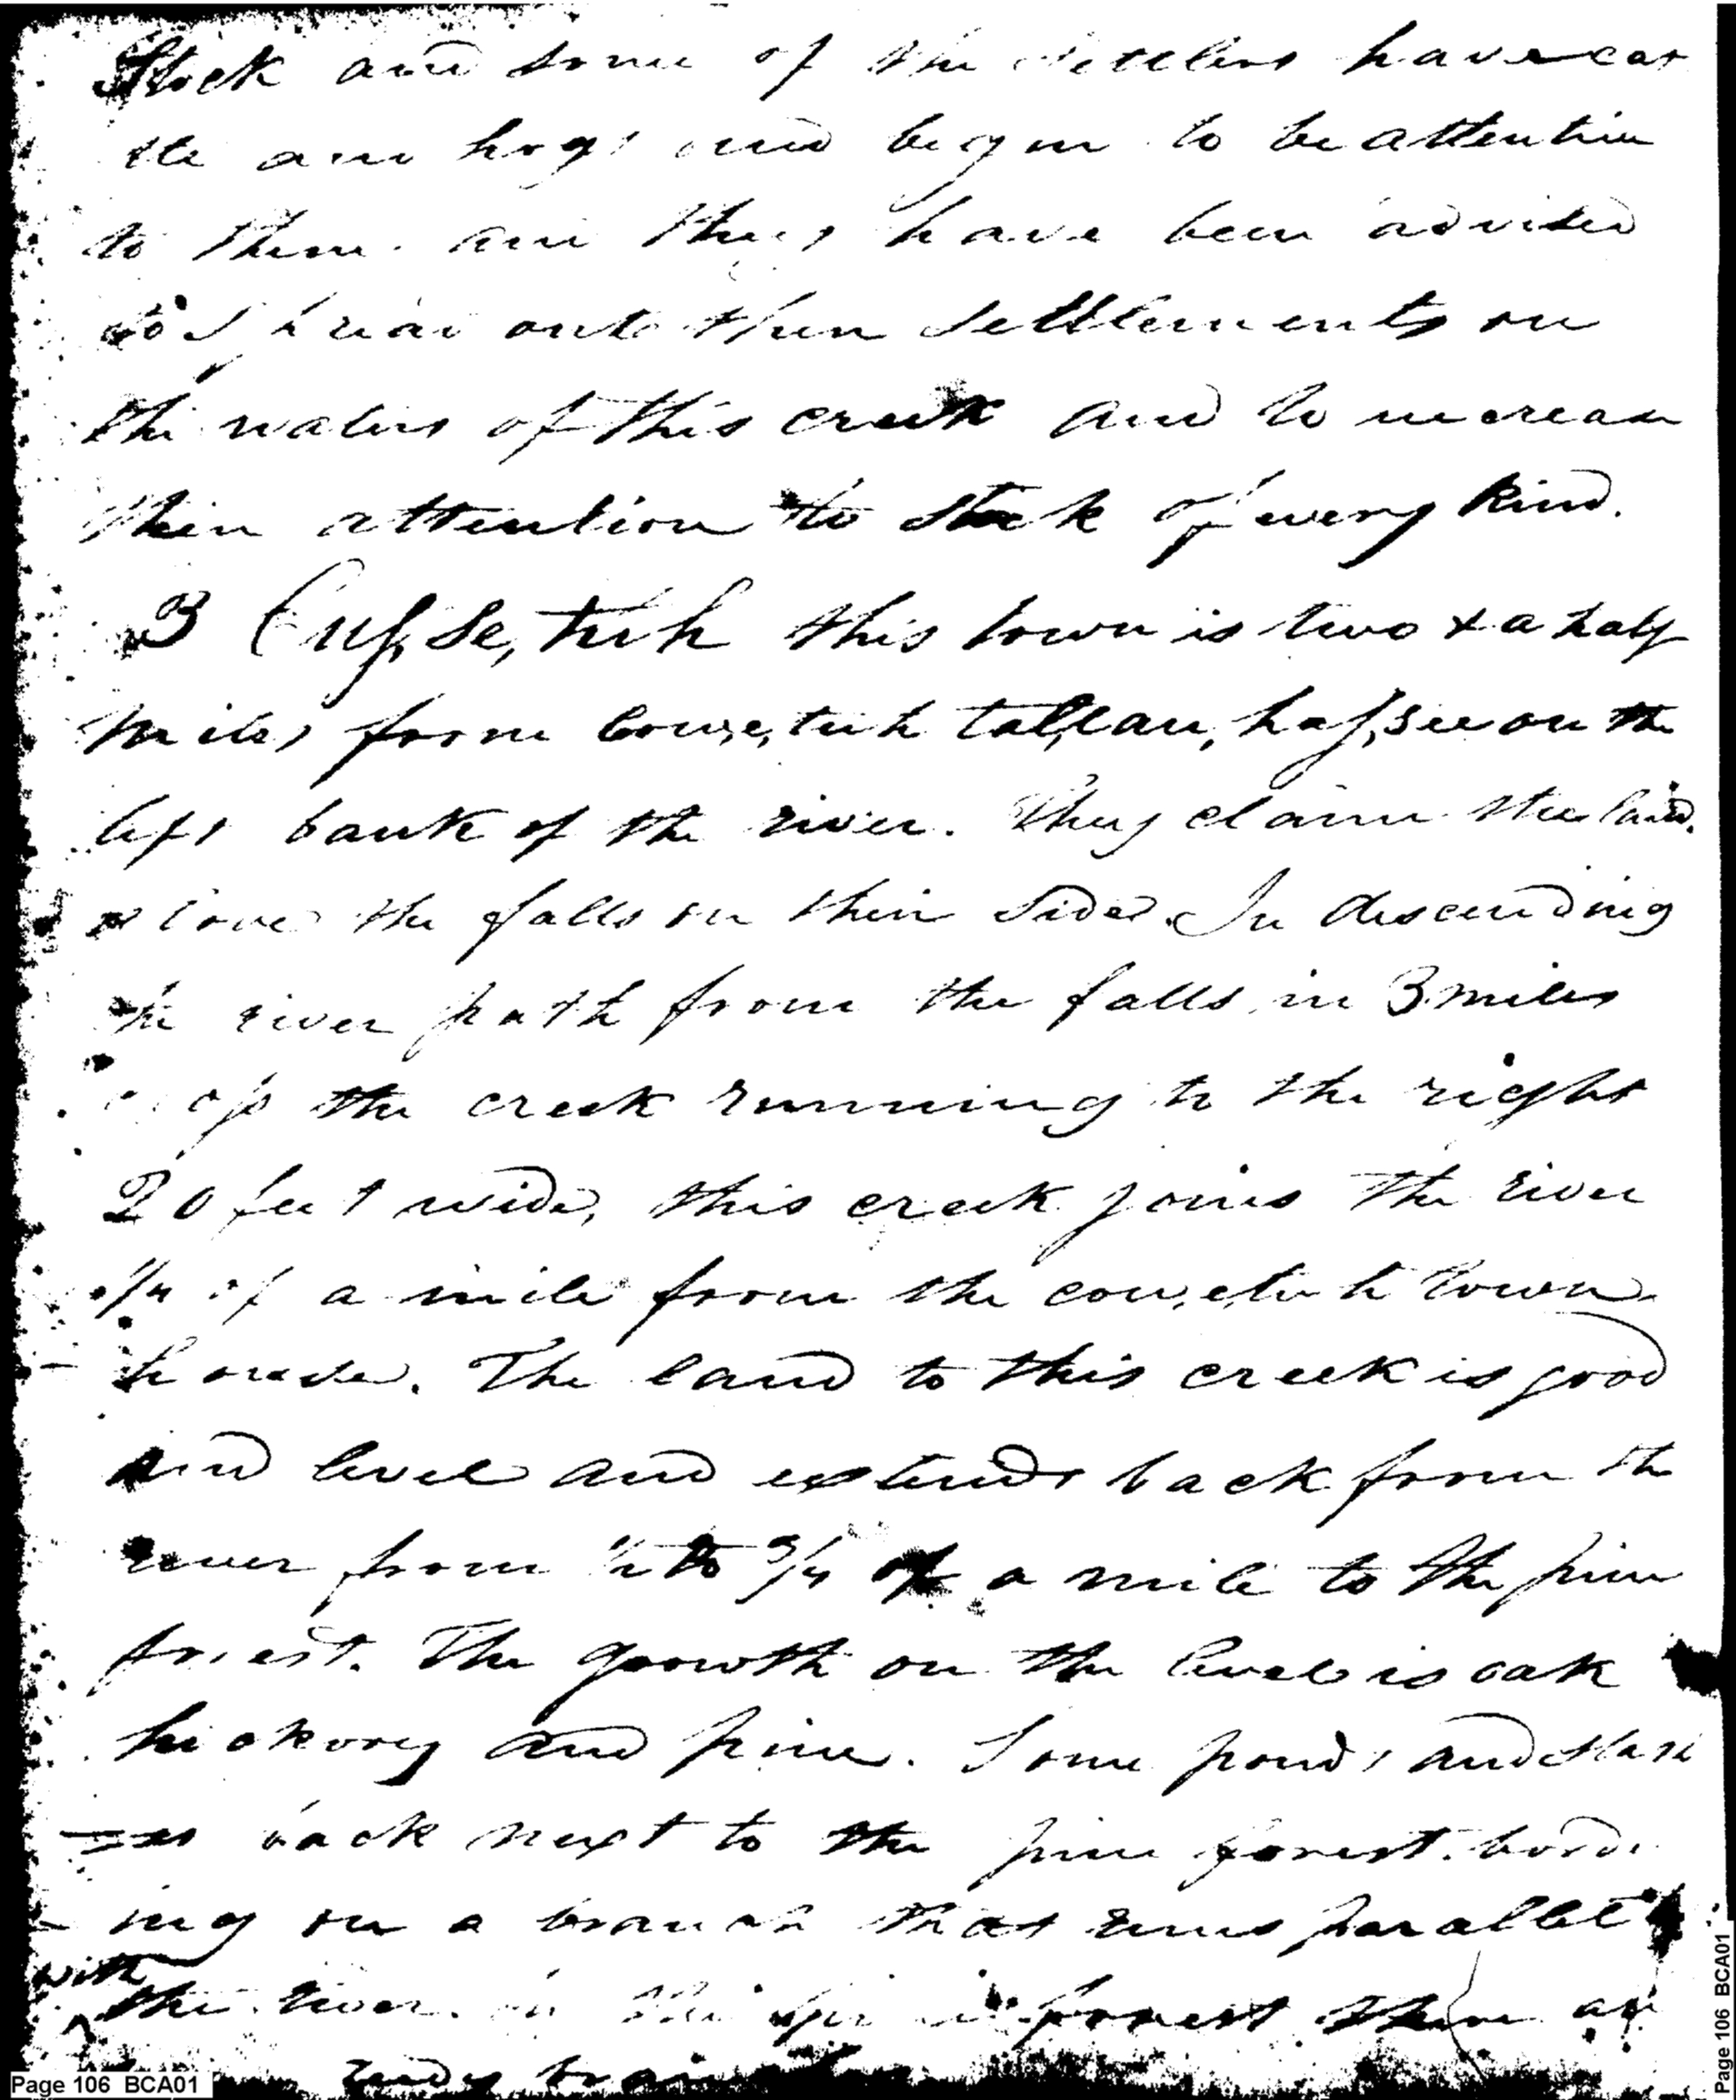 Stock and some of the settlers have cat
tle and hogs and begin to be attentive
to them and they have been advised
to spread out their settlements on
the waters of this creek and to increase
their attention to stock of every kind.
3 Cusse,tuh this town is two & a half
miles from Cow,e,tuh tal,lau,has,see on the
left bank of the river. They claim the land
above the falls on their side. In descending
the river path from the falls in 3 miles
cross the creek running to the right
20 feet wide, this creek joins the river
1/4 of a mile from the cow,e,tuh town
house. The land to this creek is good
and level and extends back from the
river from 1/2 to 3/4 of a mile to the pine
forest. The growth on the level is oak
hickory and pine. Some ponds and slash
=es back next to the pine forest. bord
- ing on a branch that runs parallel
with
the river in the pine forrest there are
reedy
Page 106 BCA01
Page 106 BCA01